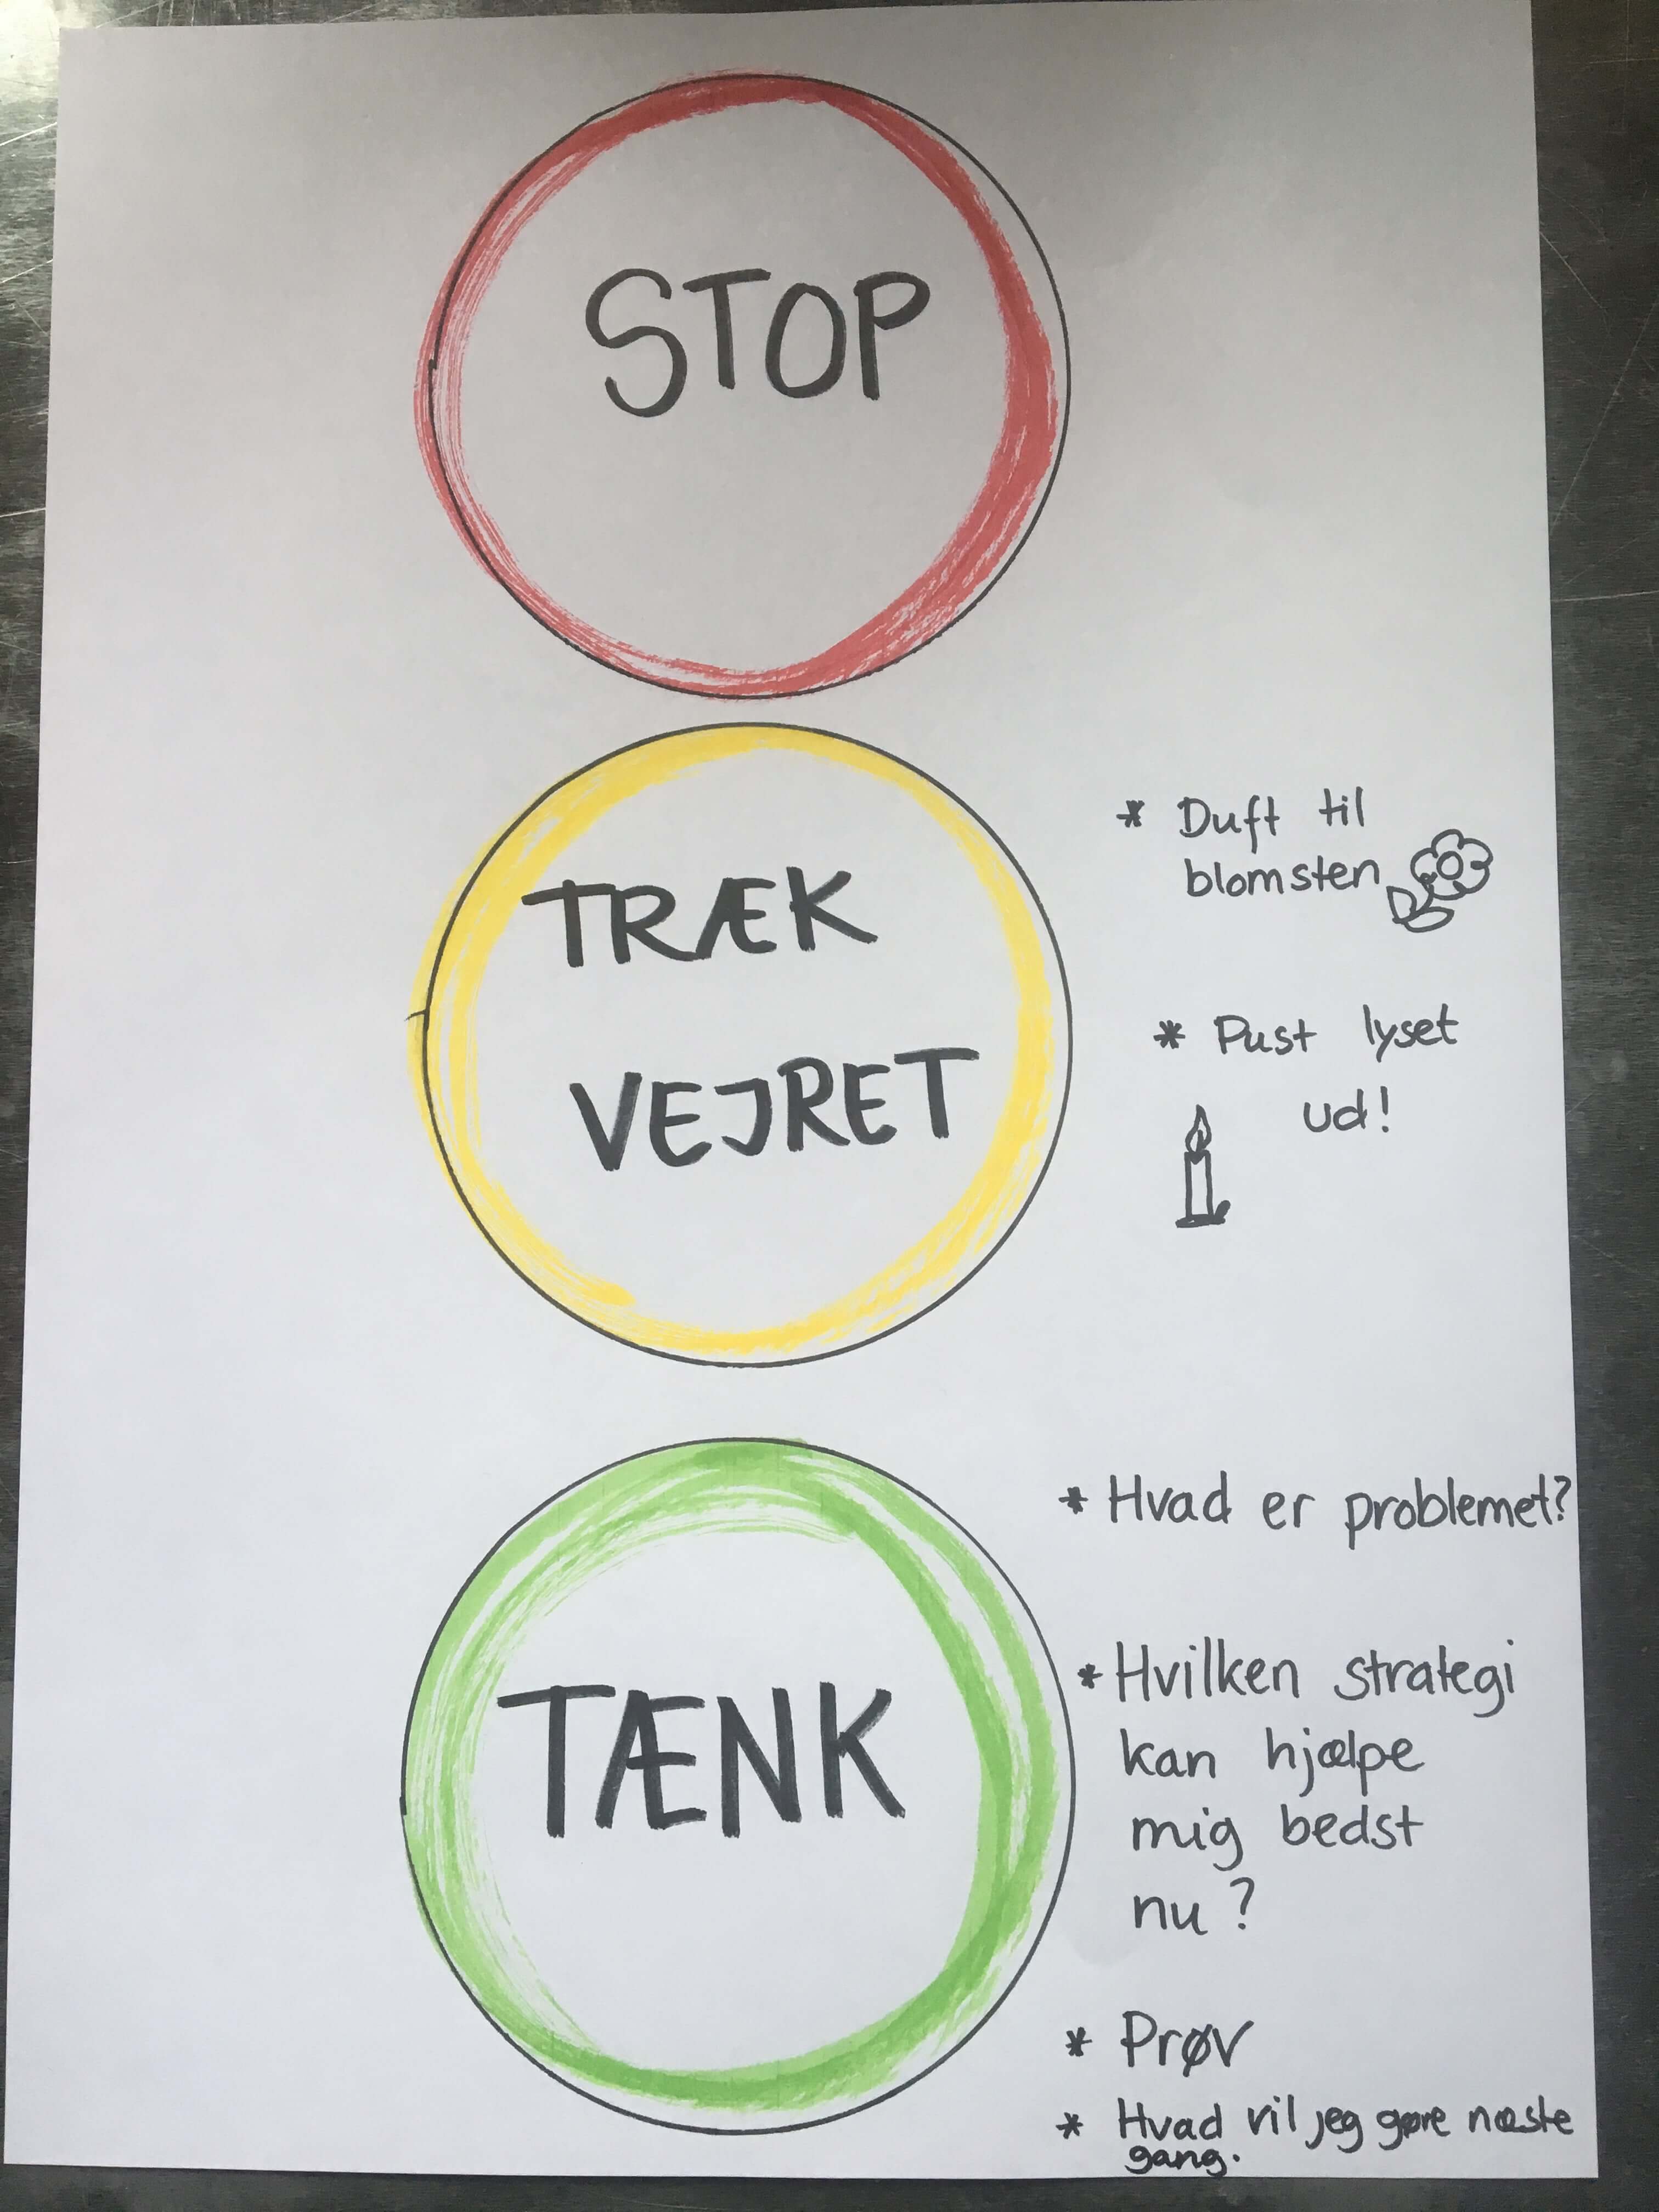 STOP
TRÆK
VEJRET
* Duft til
blomsten
* Pust lyset
ud!
TÆNK
* Hvad er problemet?
* Hvilken strategi
kan hjælpe
mig bedst
nu?
* Prøv
* Hvad vil jeg gøre næste
gang.